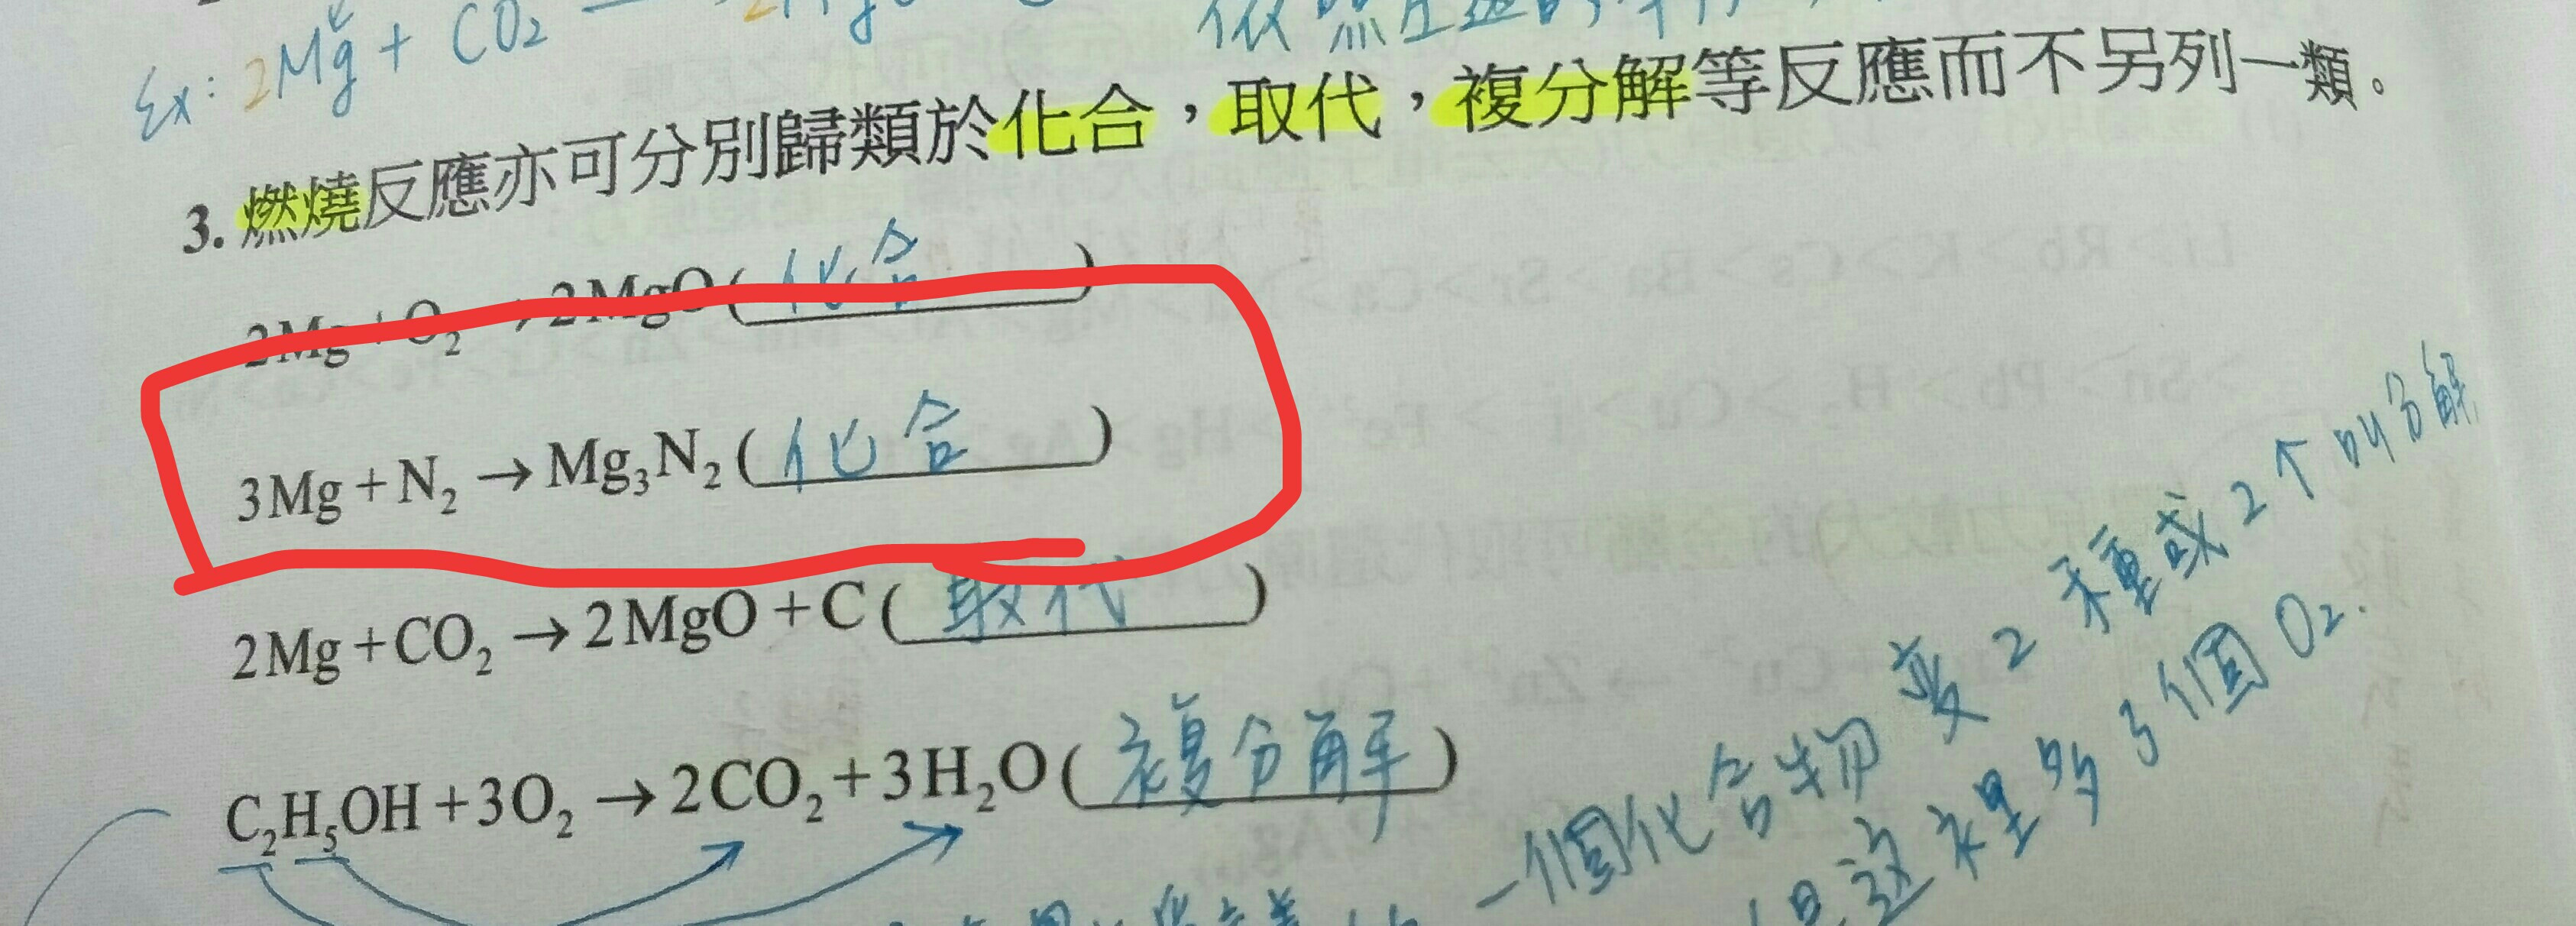 Ex: 2Mg + CO₂
3. 燃燒反應亦可分別歸類於化合，取代，複分解等反應而不另列一類。
2Mg + O₂ → 2MgO( 化合 )
3Mg + N₂ → Mg₃N₂( 化合 )
2Mg + CO₂ → 2MgO + C( 取代 )
C₂H₅OH + 3O₂ → 2CO₂ + 3H₂O( 複分解 )
一個化合物变2種或2个叫分解
这裡多3個O₂.